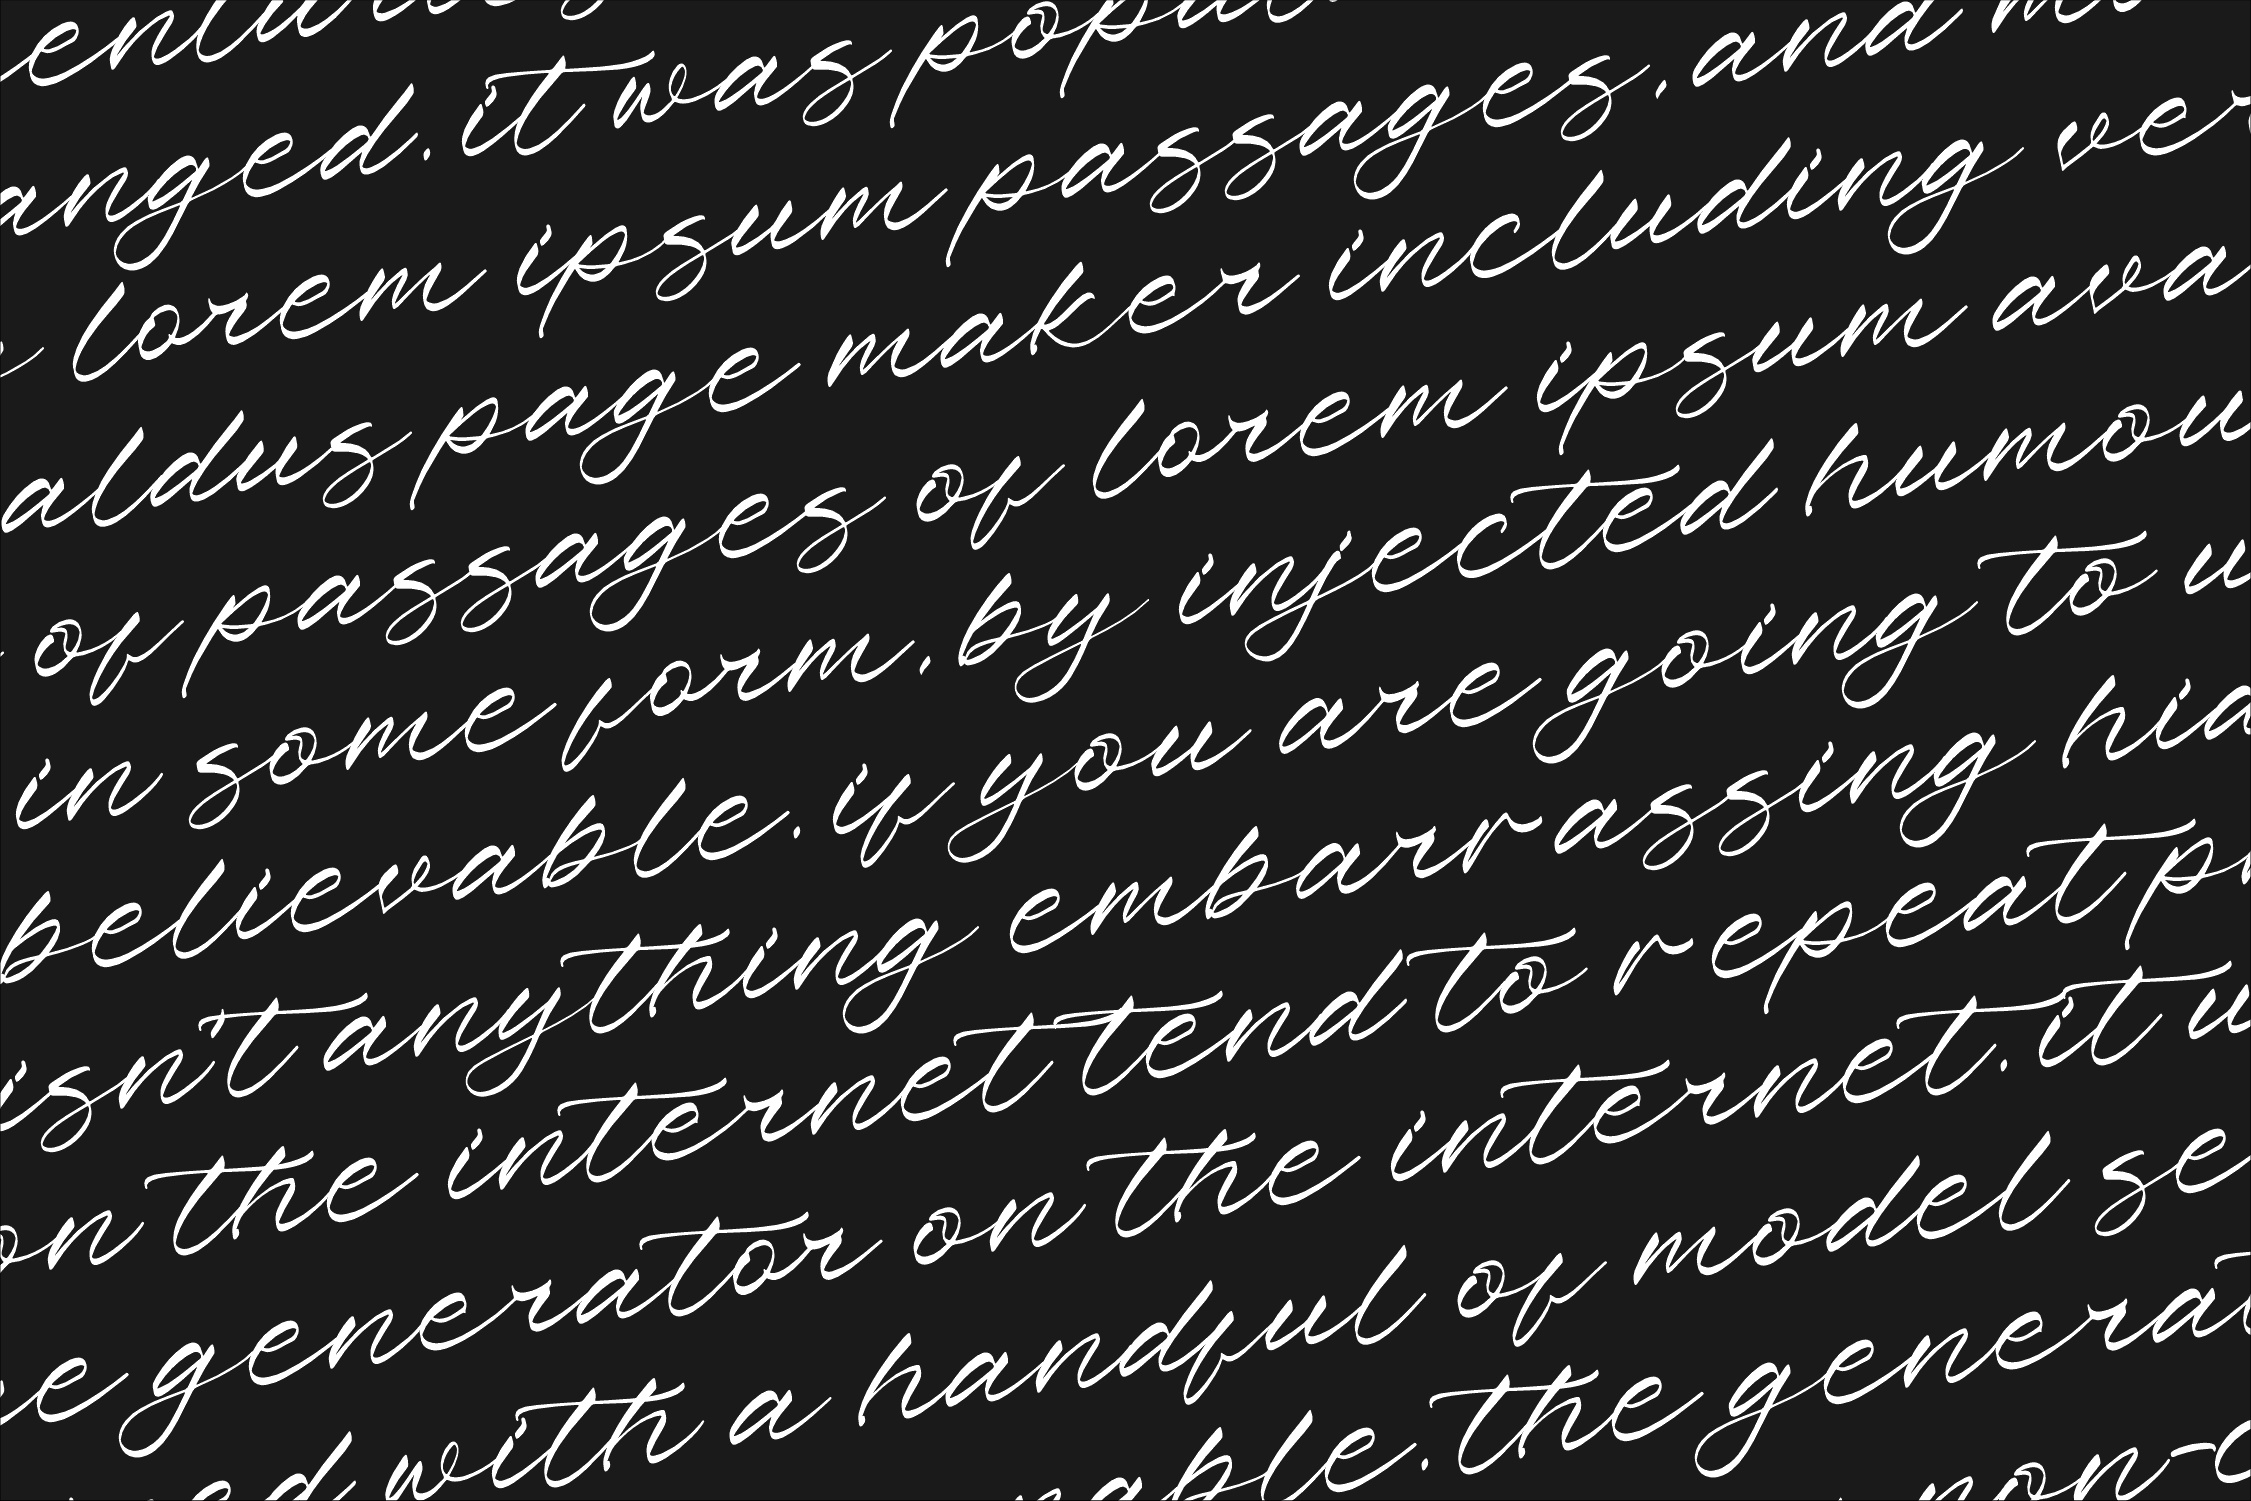 anged. it was popu
lorem ipsum passages, and m
aldus page maker including ver
of passages of lorem ipsum ava
in some form, by injected humou
believable. if you are going to u
isn't anything embarrassing hid
on the internet tend to repeat p
e generator on the internet. it u
ed with a handful of model se
able. the generat
non-c